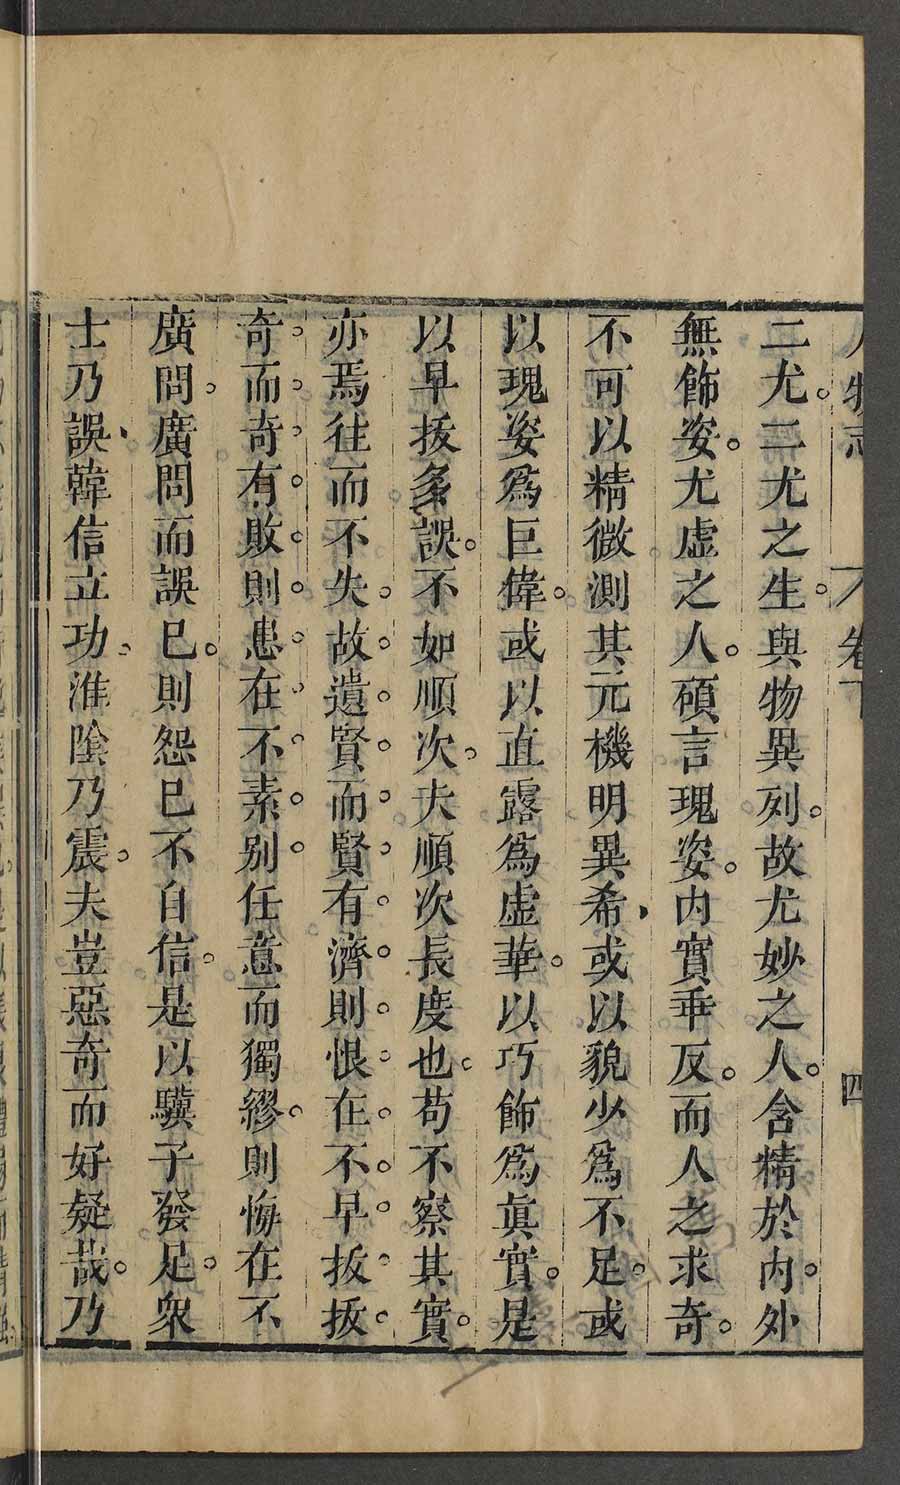 人物志 卷下 四
二尤。二尤之生。與物異列。故尤妙之人。含精於內。外
無飾姿。尤虛之人。碩言瑰姿。內實乖反。而人之求奇。
不可以精微測其元機明異希、或以貌少為不足。或
以瑰姿為巨偉。或以直露為虛華。以巧飾為眞實。是
以早拔多誤。不如順次。夫順次長度也。苟不察其實。
亦焉往而不失。故遺賢而賢有濟則恨在不早拔拔
奇而奇有敗則患在不素別任意而獨繆則悔在不
廣問。廣問而誤已。則怨已不自信。是以驥子發足。衆
士乃誤、韓信立功、淮陰乃震。夫豈惡奇而好疑哉。乃